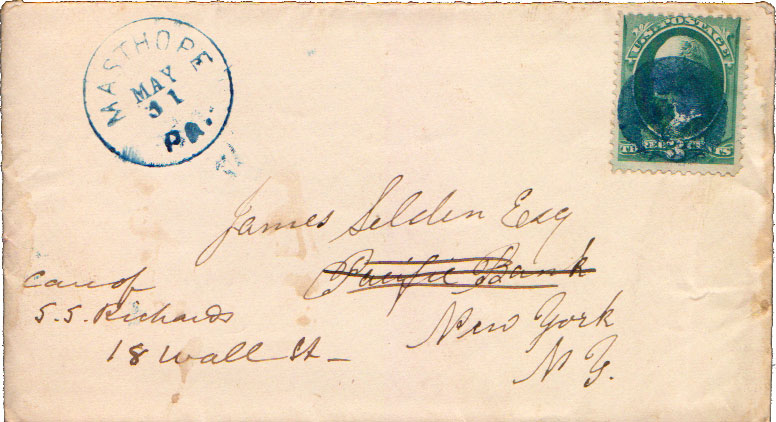 MASTHOPE
MAY
31
PA.
U.S. POSTAGE
THREE CENTS
James Selden Esq
Pacific Bank
New York
N Y.
Care of
S. S. Richards
18 Wall St -